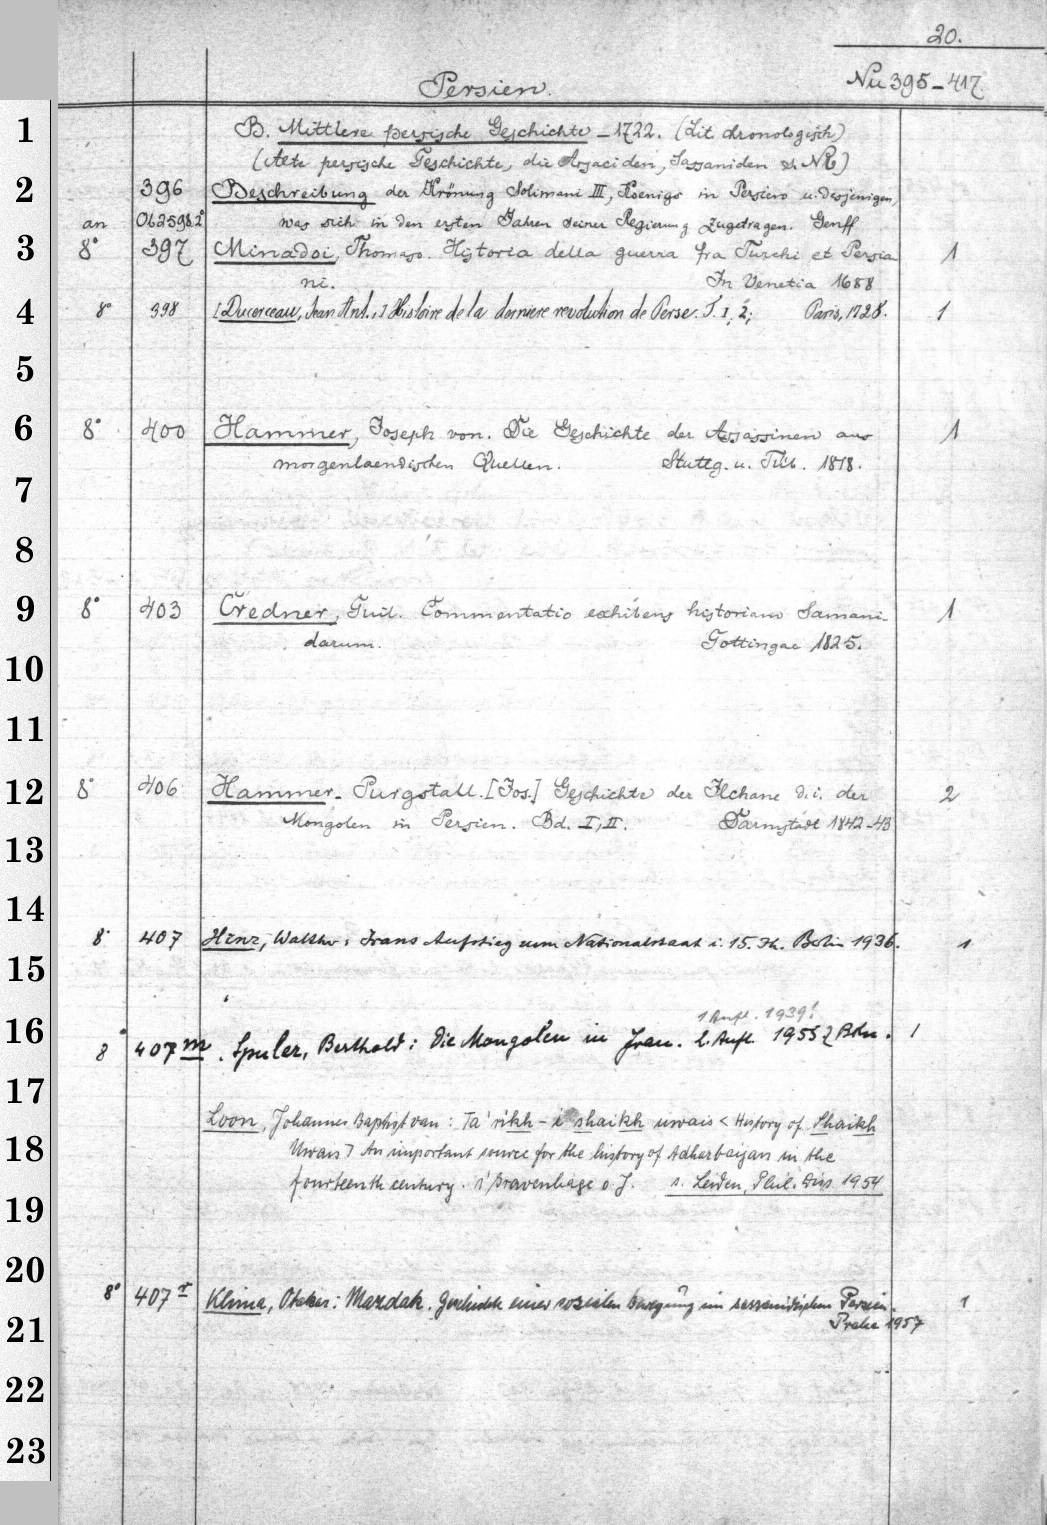 20.
Persien.
Nu 395-417
1
B. Mittlere persische Geschichte - 1722. (Lit chronologisch)
(Alte persische Geschichte, die Arsaciden, Sassaniden s. NR)
2
396 Beschreibung der Krönung Solimani III, Koenigs in Persien u. desjenigen,
an Ob2598.2° was sich in den ersten Jahren seiner Regierung zugetragen. Genff
3
8° 397 Minadoi, Thomaso. Historia della guerra fra Turchi et Persia 1
ni. In Venetia 1688
4
8° 398 [Ducerceau, Jean Ant.,] Histoire de la derniere revolution de Perse. T. 1, 2; Paris, 1728. 1
5
6
8° 400 Hammer, Joseph von. Die Geschichte der Assassinen aus 1
morgenlaendischen Quellen. Stuttg. u. Tüb. 1818.
7
8
9
8° 403 Credner, Guil. Commentatio exhibens historiam Samani- 1
darum. Gottingae 1825.
10
11
12
8° 406 Hammer-Purgstall. [Jos.] Geschichte der Ilchane d. i. der 2
Mongolen in Persien. Bd. I, II. Darmstadt 1842-43
13
14
8° 407 Hinz, Walther: Irans Aufstieg zum Nationalstaat i. 15. Jh. Berlin 1936. 1
15
1 Aufl. 1939!
16
8° 407 m. Spuler, Berthold: Die Mongolen in Iran. 2. Aufl. 1955 Bln. 1
17
Loon, Johannes Baptist van: Ta'rikh-i shaikh uwais < History of Shaikh
18
Uwais > An important source for the history of Adherbaijan in the
fourteenth century. s'Gravenhage o J. s. Leiden, Phil. Diss 1954
19
20
8° 407 r Klima, Otakar: Mazdak. Geschichte einer sozialen Bewegung im sassanidischen Persien. 1
21
Praha 1957
22
23